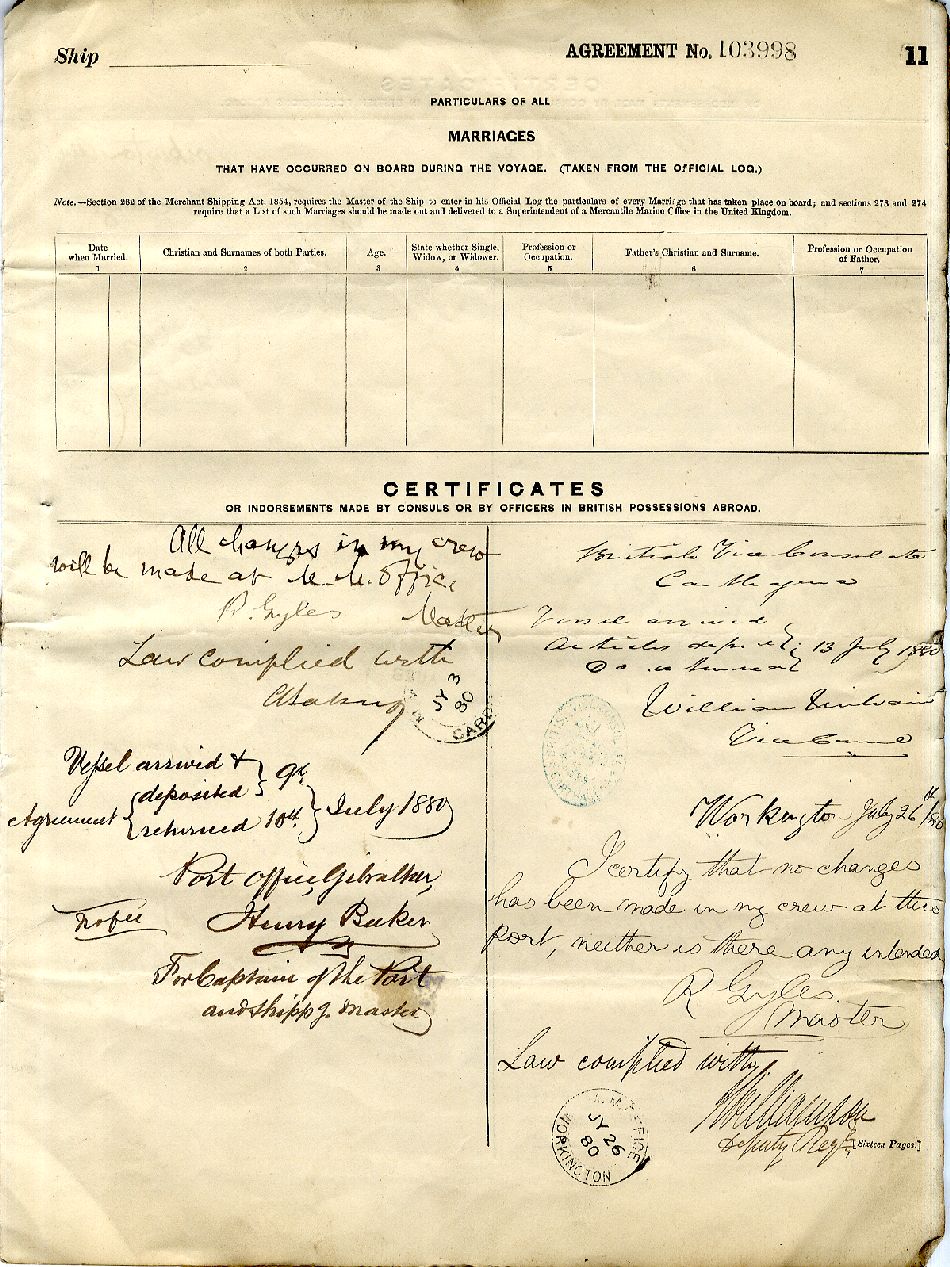 Ship
AGREEMENT No. 103998
11
PARTICULARS OF ALL
MARRIAGES
THAT HAVE OCCURRED ON BOARD DURING THE VOYAGE. (TAKEN FROM THE OFFICIAL LOG.)
Note.—Section 282 of the Merchant Shipping Act, 1854, requires the Master of the Ship to enter in his Official Log the particulars of every Marriage that has taken place on board; and sections 273 and 274
require that a List of such Marriages should be made out and delivered to a Superintendent of a Mercantile Marine Office in the United Kingdom.
Date when Married. Christian and Surnames of both Parties. Age. State whether Single, Widow, or Widower. Profession or Occupation. Father's Christian and Surname. Profession or Occupation of Father.
1 2 3 4 5 6 7
CERTIFICATES
OR INDORSEMENTS MADE BY CONSULS OR BY OFFICERS IN BRITISH POSSESSIONS ABROAD.
All changes in my crew
will be made at M. M. Office
R. Gyles Master
Law complied with
JY 3
80
Vessel arrived &
deposited 9th
Agreement returned 10th July 1880
Port Office, Gibraltar,
No fee
Henry Baker
For Captain of the Port
and Shippg. Master
British Vice Consulate
Carthagena
Vessel arrived
Articles deposited 13 July 1880
Do
William
Vice Consul
Workington July 26th/80
I certify that no changes
has been made in my crew at this
Port, neither is there any intended
R Gyles
Master
Law complied with
Deputy
[Sixteen Pages.]
M.M. OFFICE
JY 26
80
WORKINGTON